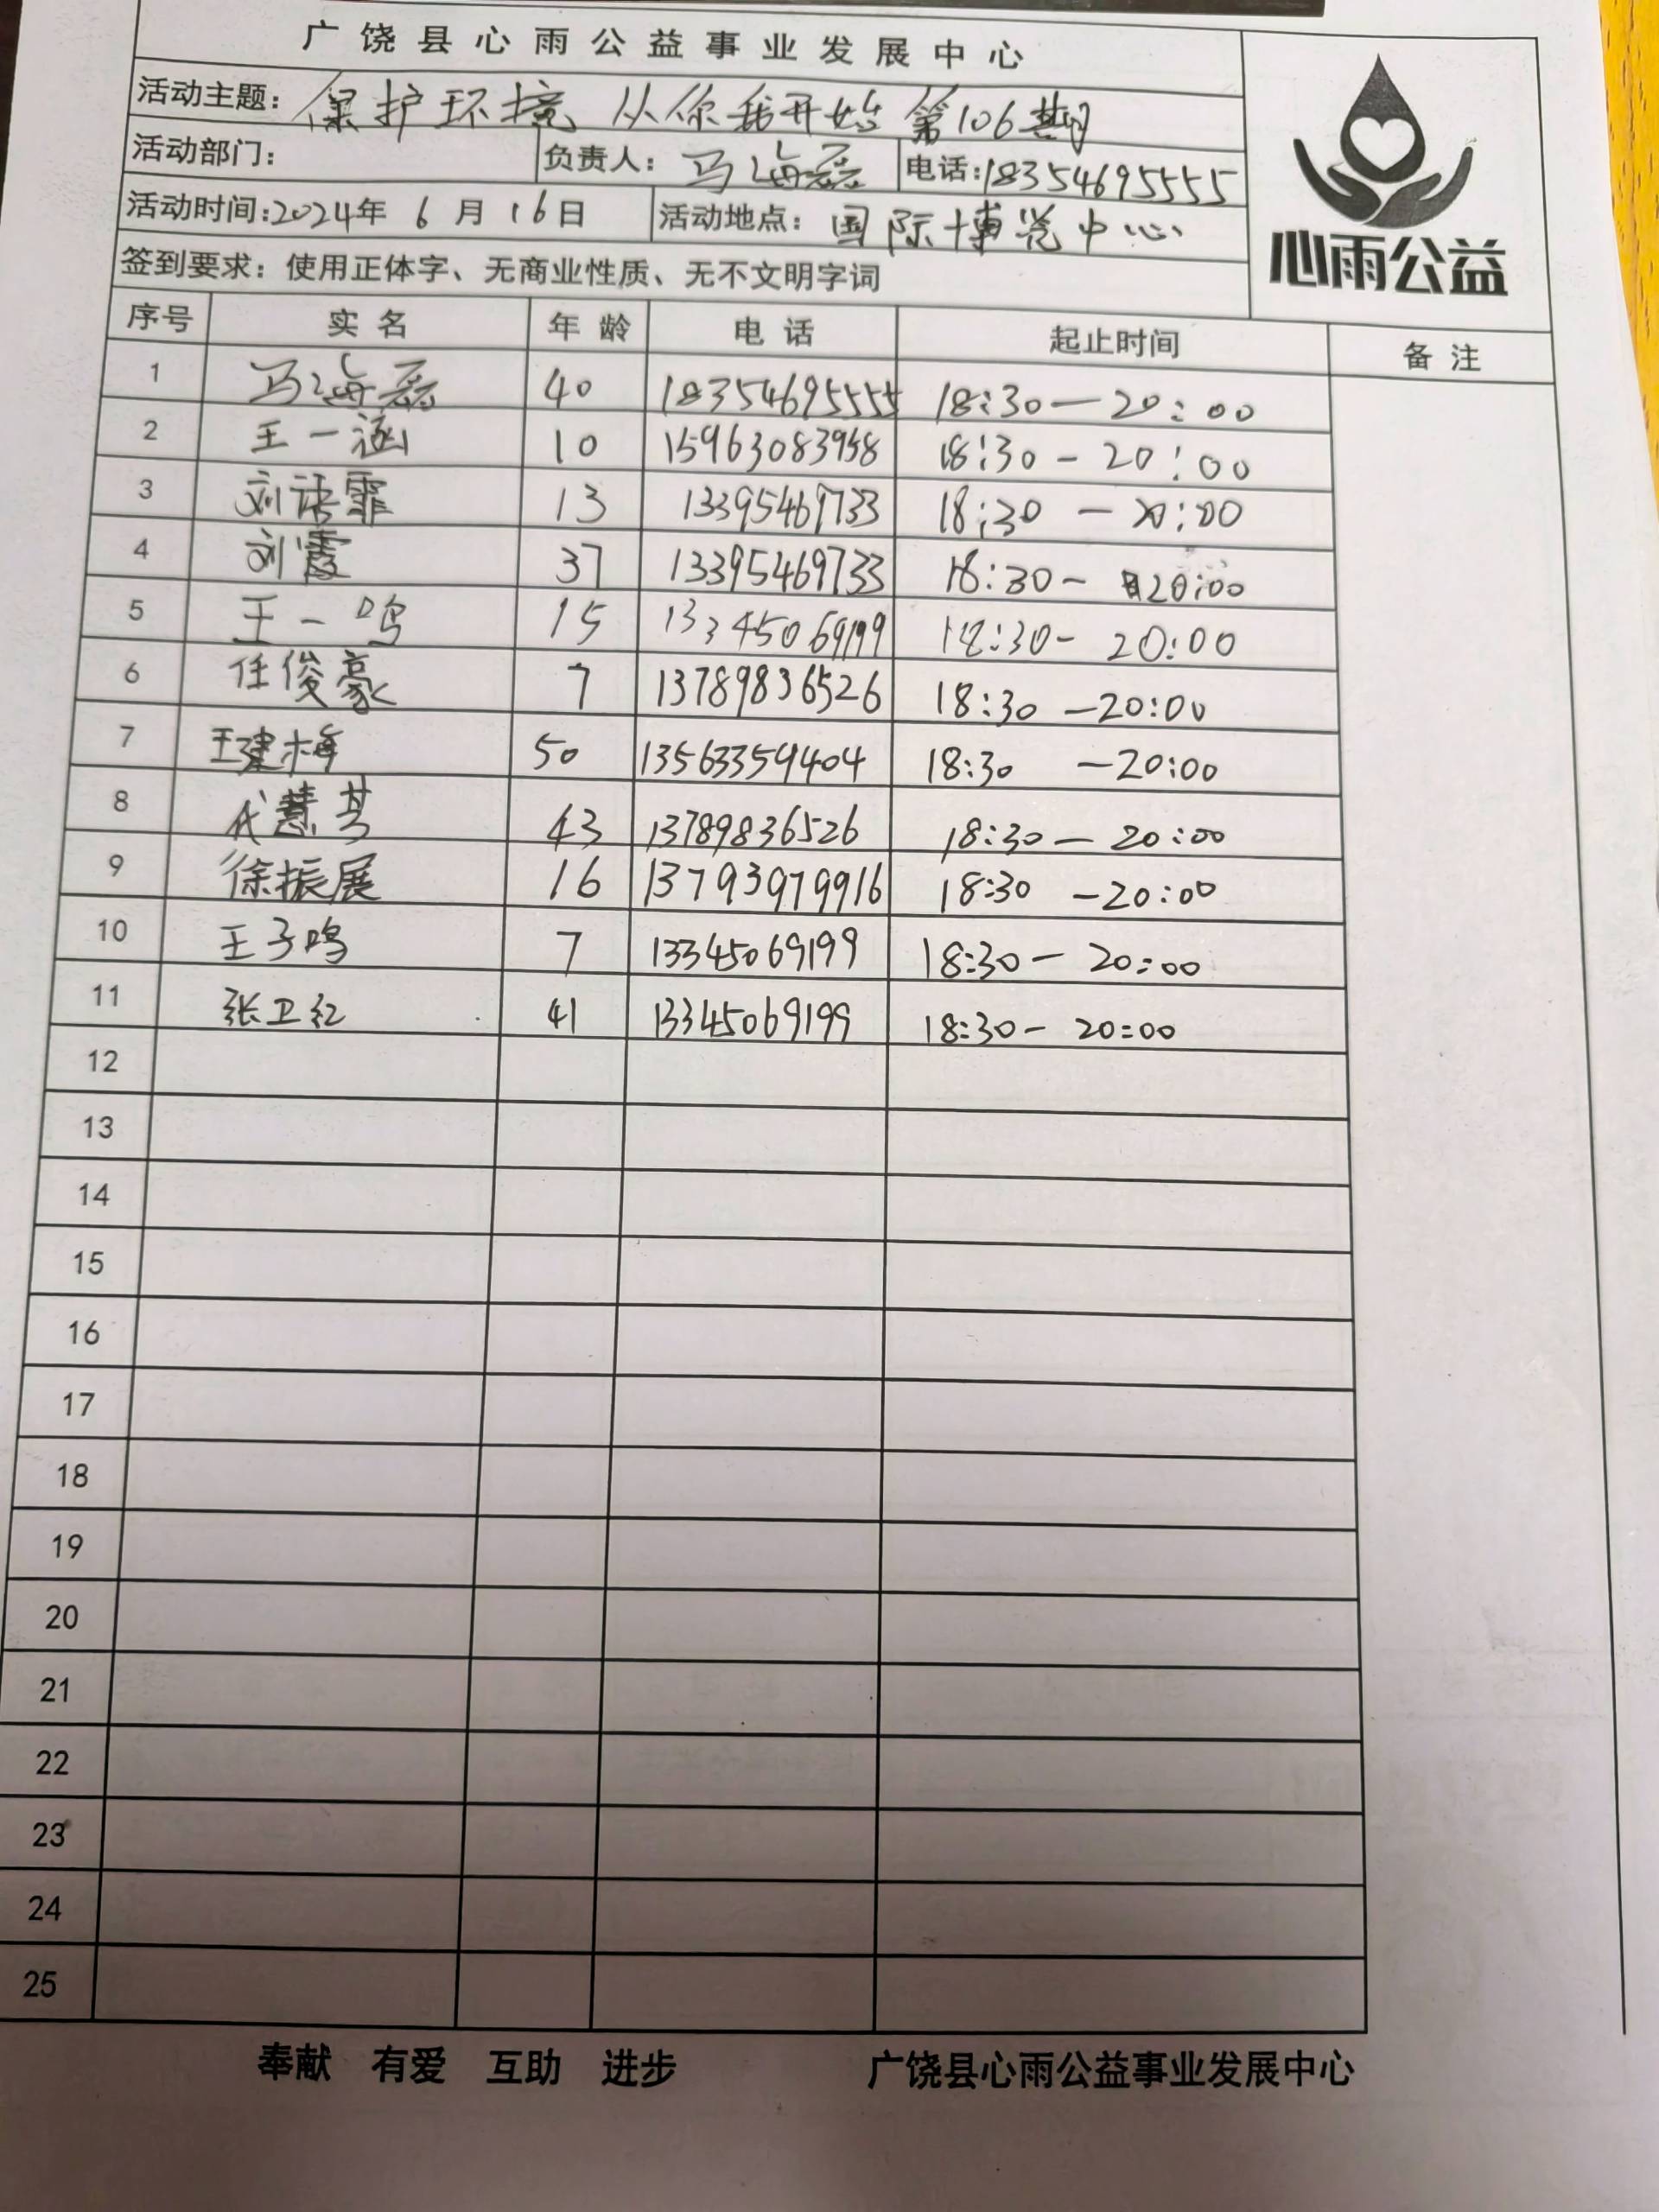 广饶县心雨公益事业发展中心
活动主题：保护环境 从你我开始 第106期
活动部门： 负责人：马海磊 电话：18354695555
活动时间：2024年 6 月 16日 活动地点：国际博览中心
心雨公益
签到要求：使用正体字、无商业性质、无不文明字词
序号 实名 年龄 电话 起止时间 备注
1 马海磊 40 18354695555 18:30—20:00
2 王一涵 10 15963083958 18:30-20:00
3 刘诺霏 13 13395469733 18:30-20:00
4 刘霞 37 13395469733 18:30-20:00
5 王一鸣 15 13345069199 18:30-20:00
6 任俊豪 7 13789836526 18:30-20:00
7 王建梅 50 13563359404 18:30-20:00
8 代慧 43 13789836526 18:30—20:00
9 徐振展 16 13793979916 18:30-20:00
10 王子鸣 7 13345069199 18:30-20:00
11 张卫红 41 13345069199 18:30-20:00
12
13
14
15
16
17
18
19
20
21
22
23
24
25
奉献 有爱 互助 进步 广饶县心雨公益事业发展中心